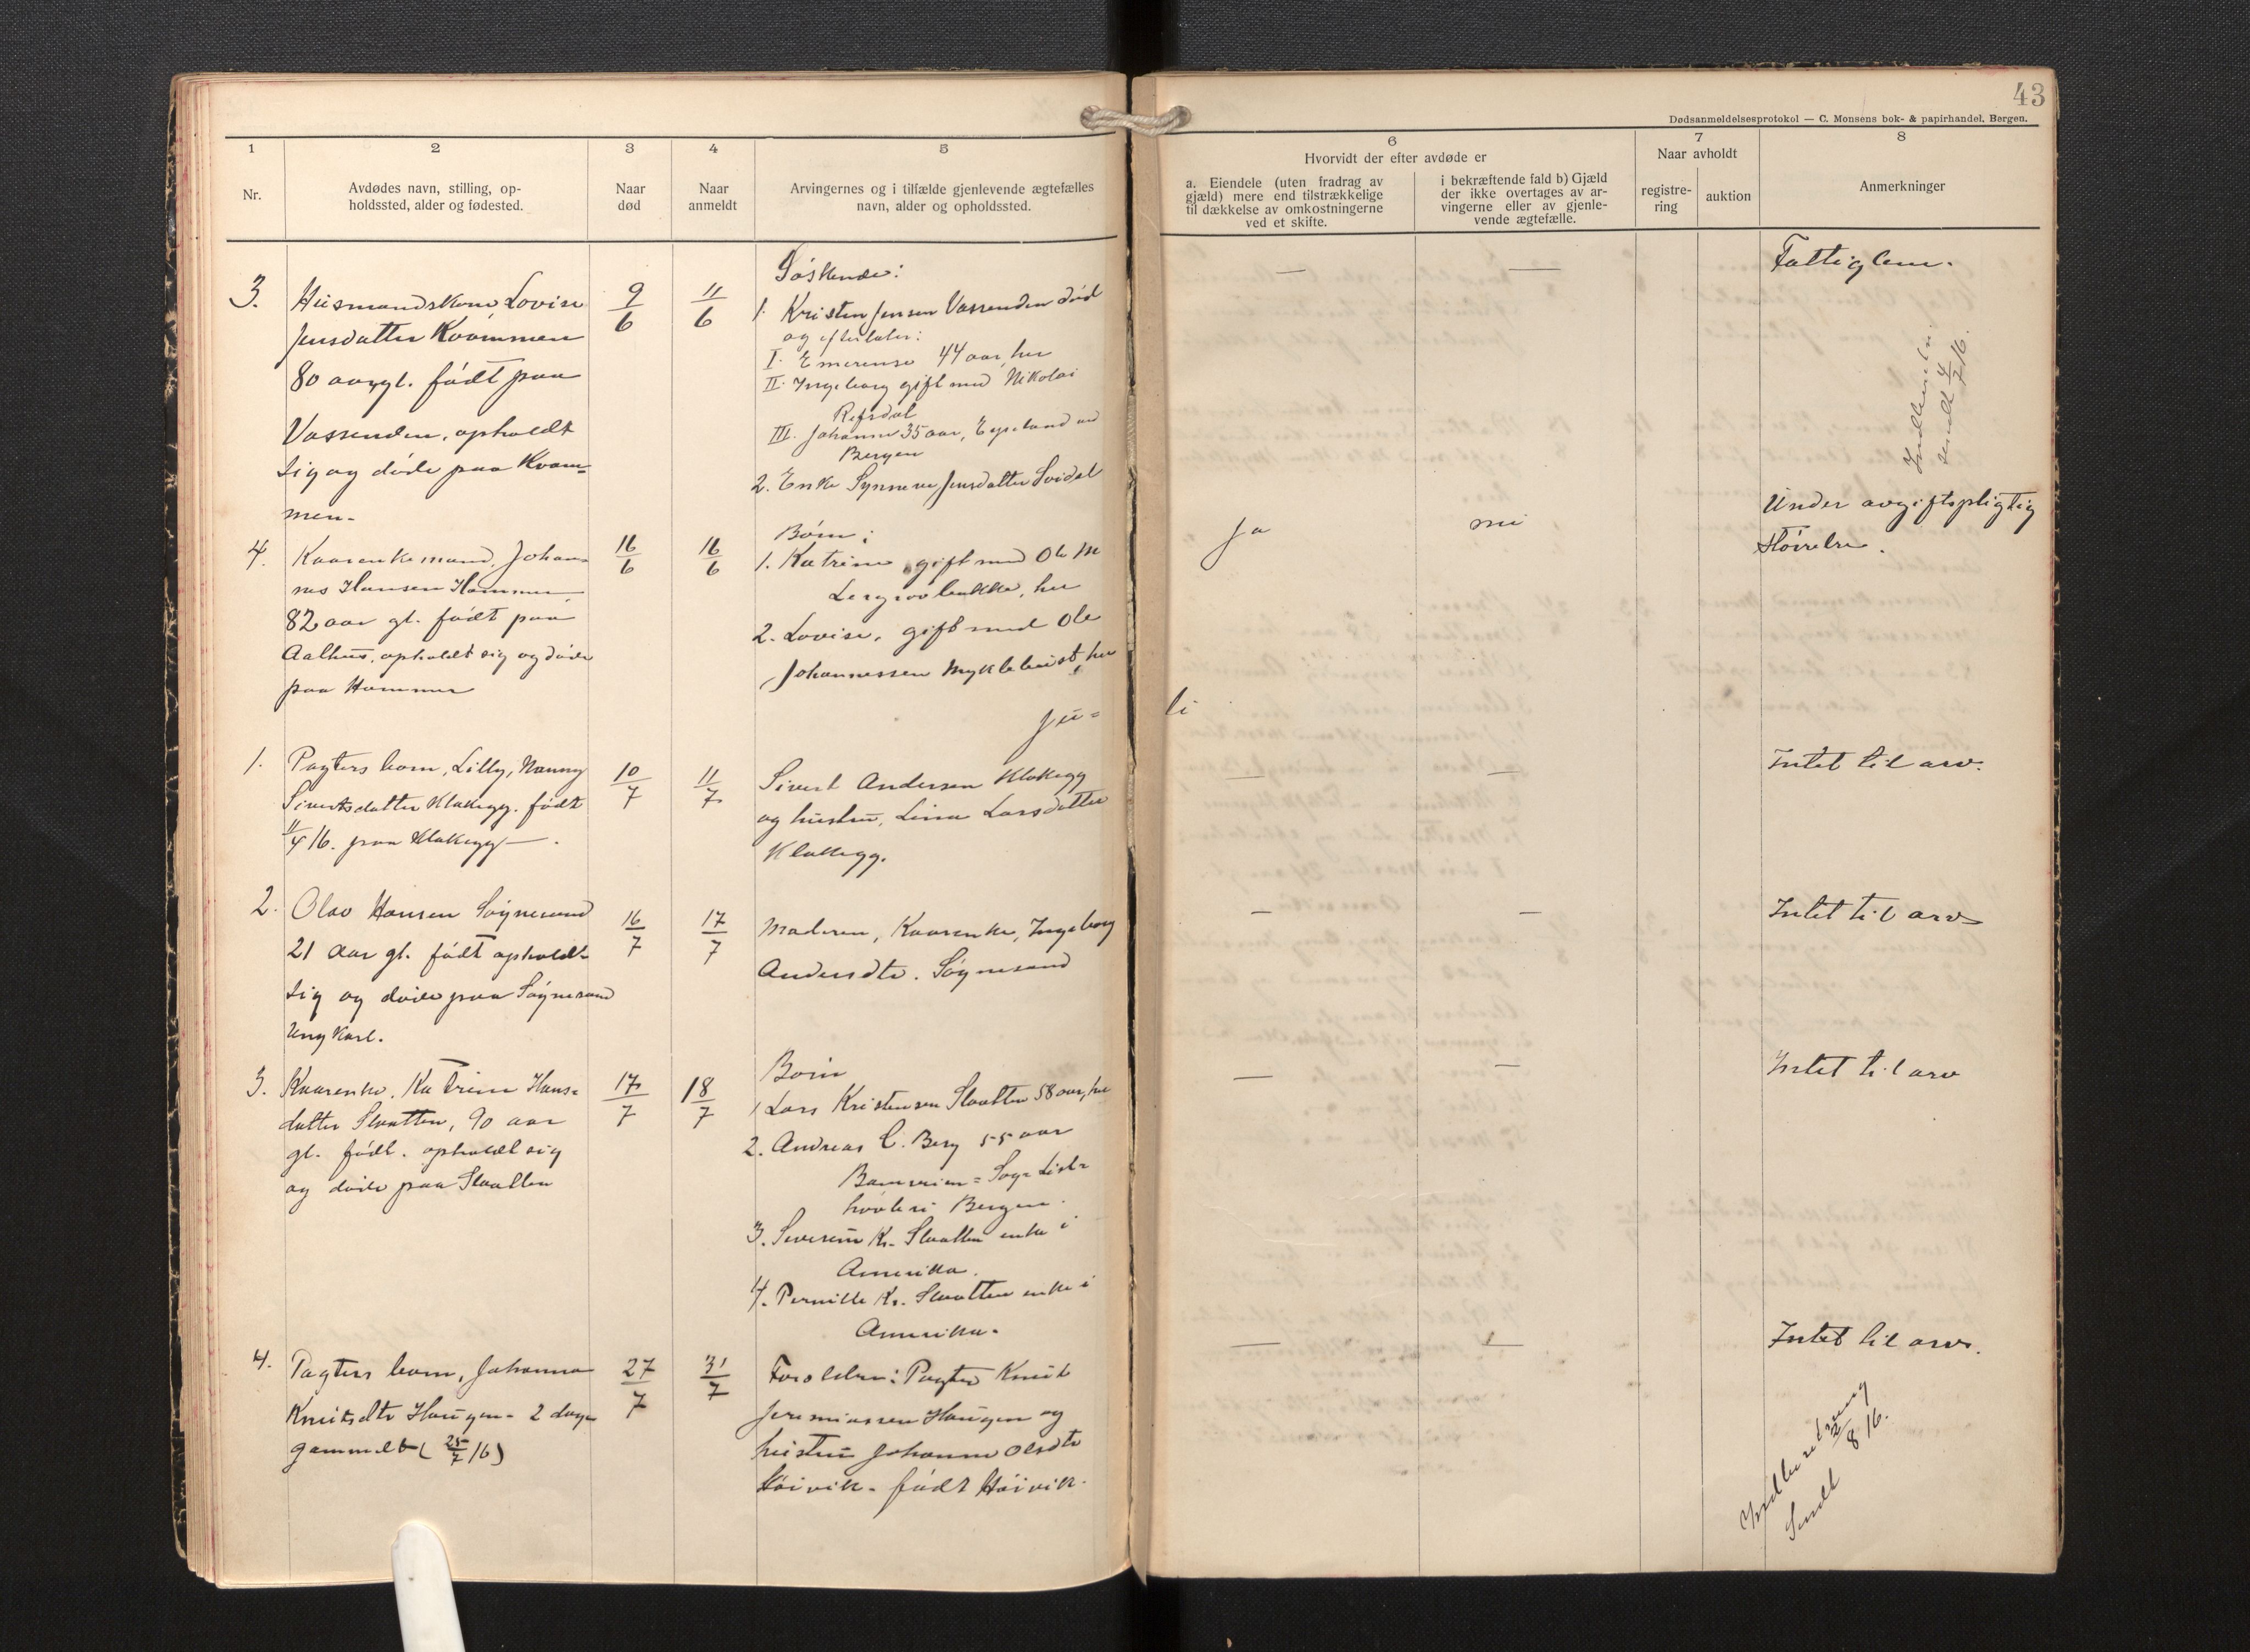 43
Dødsanmeldelsesprotokol — C. Monsens bok- & papirhandel, Bergen.
1
2
3
4
5
6
7
8
Nr.
Avdødes navn, stilling, op-
holdssted, alder og fødested.
Naar
død
Naar
anmeldt
Arvingernes og i tilfælde gjenlevende ægtefælles
navn, alder og opholdssted.
Hvorvidt der efter avdøde er
a. Eiendele (uten fradrag av
gjæld) mere end tilstrækkelige
til dækkelse av omkostningerne
ved et skifte.
i bekræftende fald b) Gjæld
der ikke overtages av ar-
vingerne eller av gjenle-
vende ægtefælle.
Naar avholdt
registre-
ring
auktion
Anmerkninger
3.
Husmandskone Lovise
Jensdatter Kvammen
80 aar gl. født paa
Vassenden, opholdt
sig og døde paa Kvam-
men.
9/6
11/6
Søskende:
1. Kristen Jensen Vassenden død
og efterlater:
I. Emerense 44 aar, her
II. Ingeborg gift med Nikolai
Refsdal
III. Johanne 35 aar, ved
Bergen
2. Enke Synneve Jensdatter Svidal
—
—
Fattiglem.
Indberetn.
sendt 4/7 16.
4.
Kaarenkemand, Johan-
nes Hansen Hammer
82 aar gl. født paa
Aalhus, opholdt sig og døde
paa Hammer
16/6
16/6
Børn:
1. Katrine, gift med Ole M
her
2. Lovise, gift med Ole
Johannessen Myklebust, her
Ja
nei
Under avgiftspligtig
størrelse.
Ju-
li
1.
Pagters barn, Lilly, Nanny
Sivertsdatter Klakegg. født
11/4 16. paa Klakegg.
10/7
11/7
Sivert Andersen Klakegg
og hustru, Lina Larsdatter
Klakegg.
—
—
Intet til arv.
2.
Olav Hansen Søgnesand
21 aar gl. født opholdt
sig og døde paa Søgnesand
Ungkarl.
16/7
17/7
Moderen, Kaarenke, Ingeborg
Andersdtr. Søgnesand
—
—
Intet til arv
3.
Kaarenke. Katrine Hans-
datter Slaatten, 90 aar
gl. født. opholdt sig
og døde paa Slaatten
17/7
18/7
Børn
1 Lars Kristensen Slaatten 58 aar, her
2. Andreas C. Berg 55 aar
i Bergen.
3. Severine Kr. Slaatten enke i
Amerika.
4. Pernille Kr. Slaatten enke i
Amerika.
—
—
Intet til arv
4.
Pagters barn, Johanna
Knutsdtr Haugen. 2 dage
gammelt (25/7 16)
27/7
31/7
Forældre: Pagter Knut
Jeremiassen Haugen og
hustru Johanne Olsdtr
Høivik. født Høivik.
—
—
Intet til arv.
Indberetning
sendt 2/8 16.